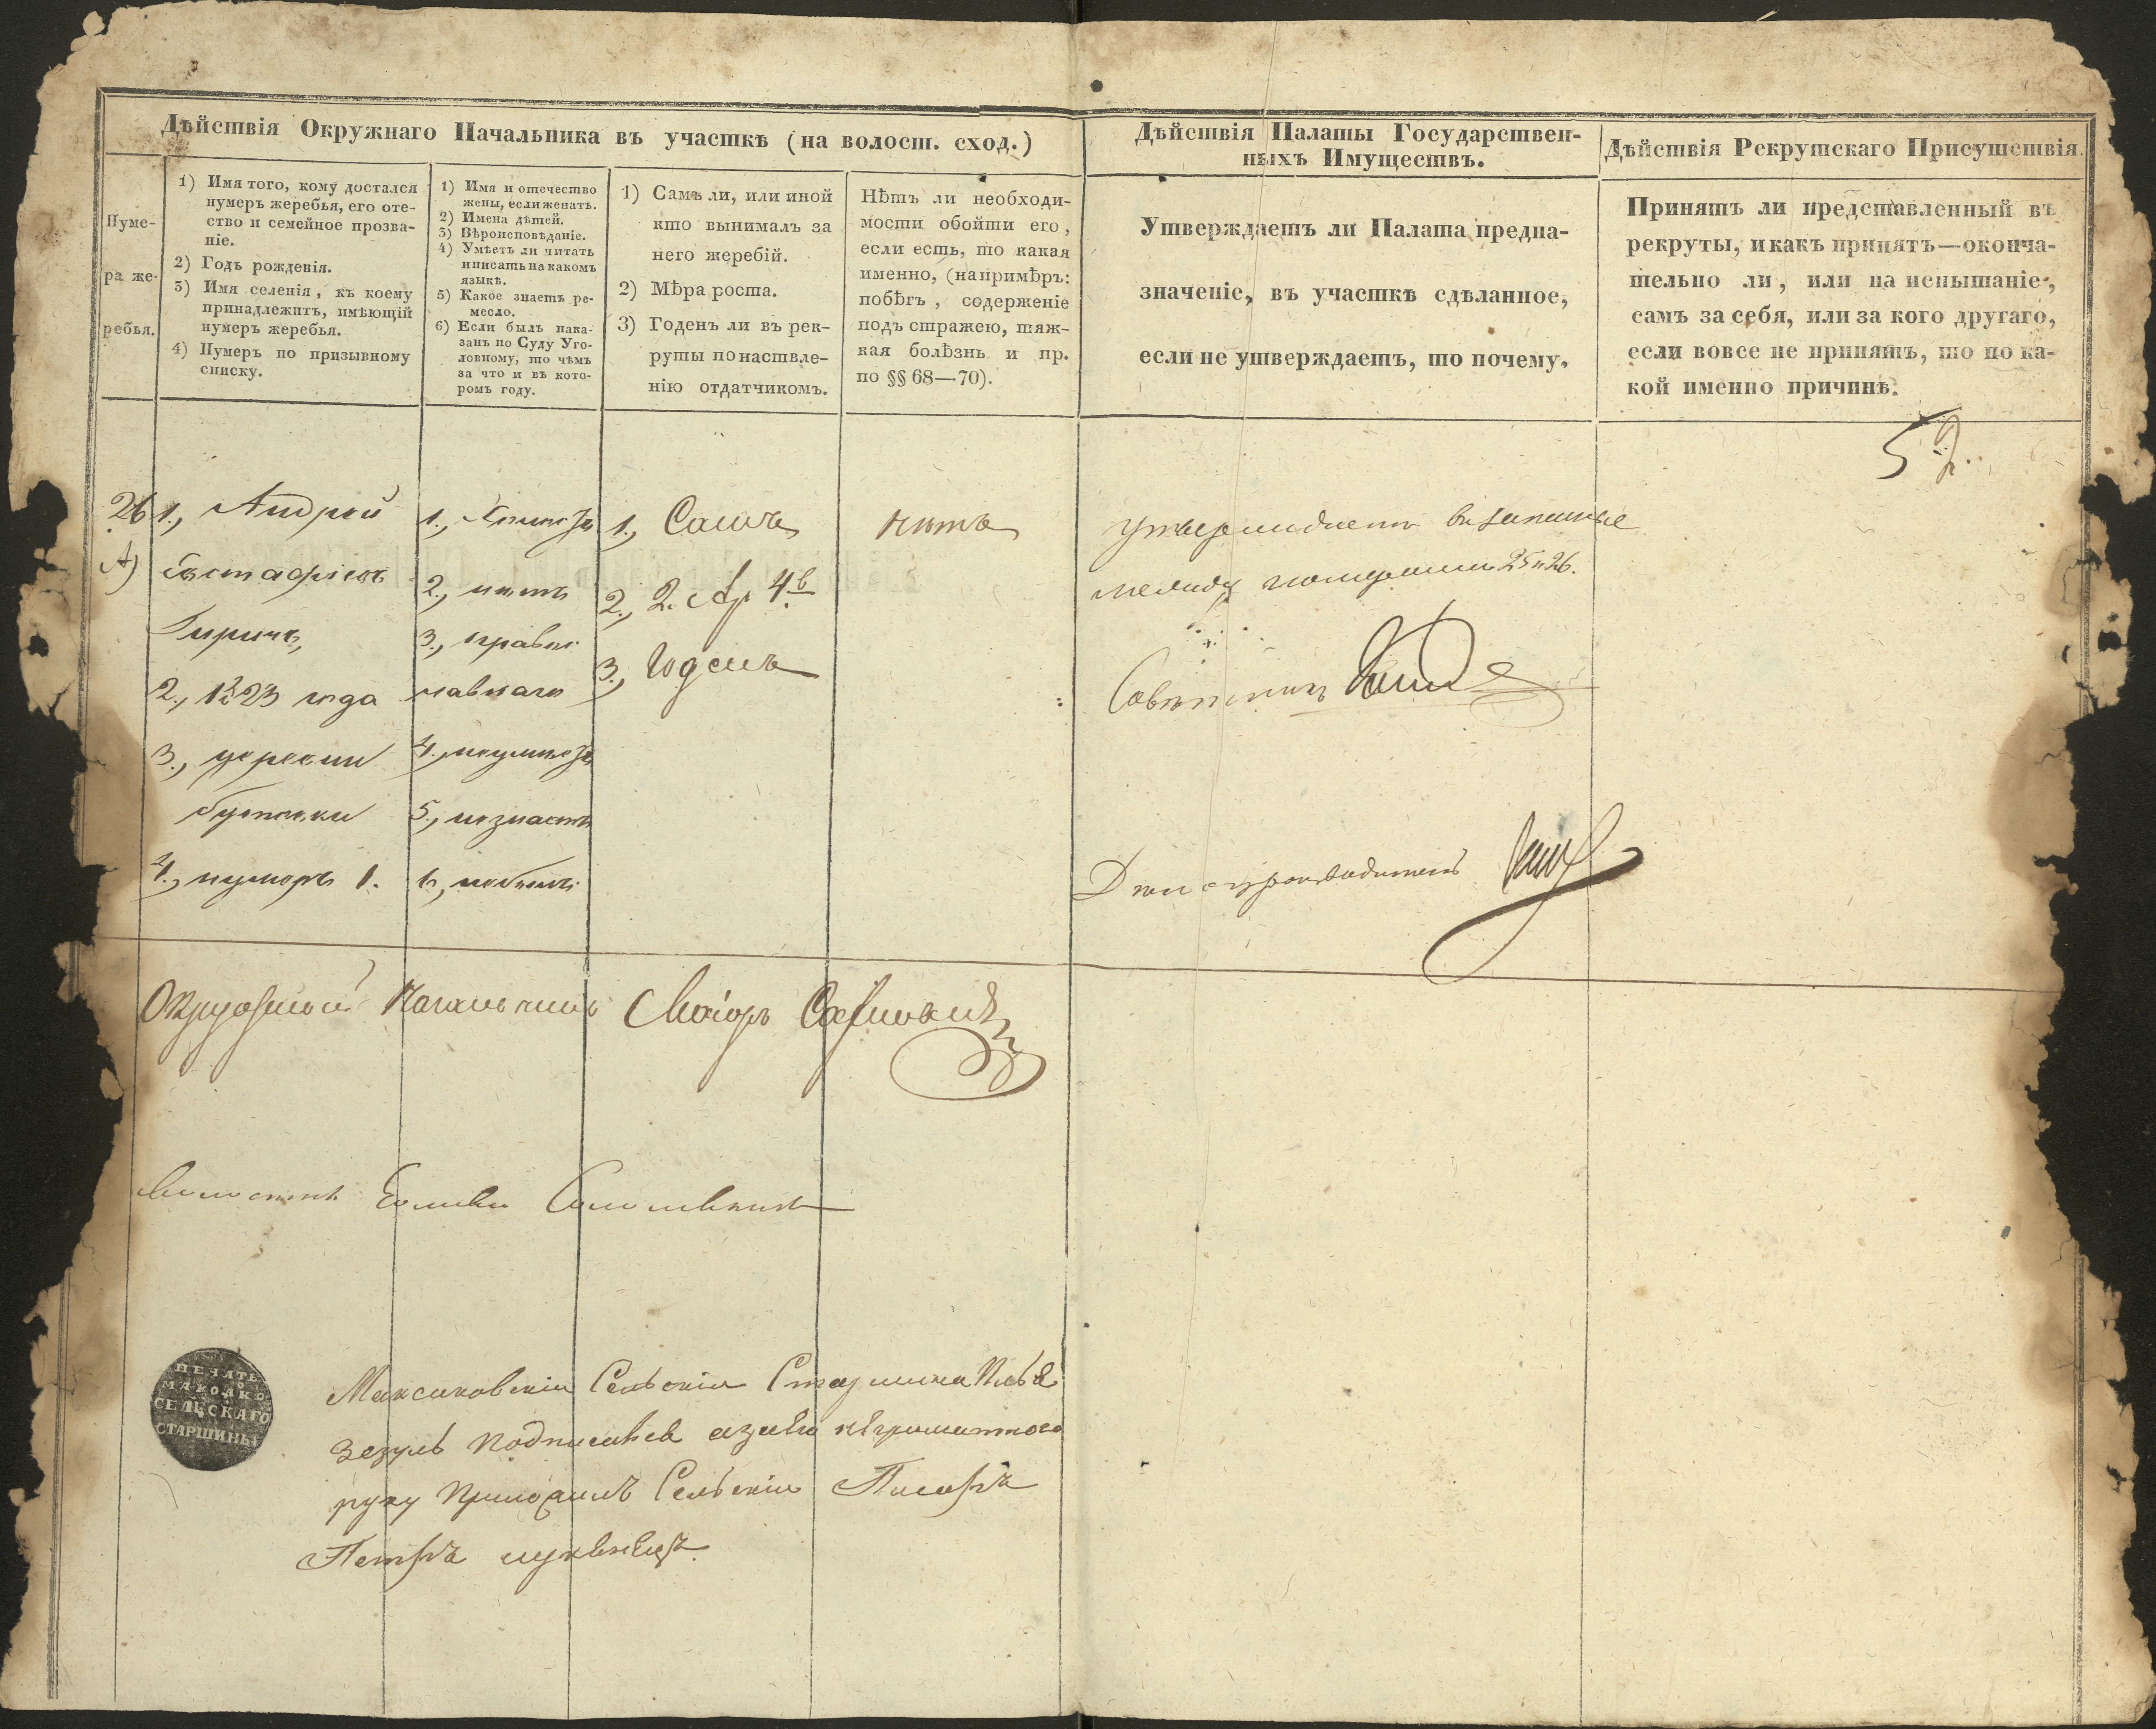 Дѣйствія Окружнаго Начальника въ участкѣ (на волост. сход.)
Дѣйствія Палаты Государствен-
ныхъ Имуществъ.
Дѣйствія Рекрутскаго Присутствія.
Нуме-
ра же-
ребья.
1) Имя того, кому достался
нумеръ жеребья, его оте-
ство и семейное прозва-
ніе.
2) Годъ рожденія.
3) Имя селенія, къ коему
принадлежитъ, имѣющій
нумеръ жеребья.
4) Нумеръ по призывному
списку.
1) Имя и отечество
жены, если женатъ.
2) Имена дѣтей.
3) Вѣроисповѣданіе.
4) Умѣетъ ли читать
и писать на какомъ
языкѣ.
5) Какое знаетъ ре-
месло.
6) Если былъ нака-
занъ по Суду Уго-
ловному, то чѣмъ
за что и въ кото-
ромъ году.
1) Самъ ли, или иной
кто вынималъ за
него жеребій.
2) Мѣра роста.
3) Годенъ ли въ рек-
руты по наствле-
нію отдатчикомъ.
Нѣтъ ли необходи-
мости обойти его,
если есть, то какая
именно, (напримѣръ:
побѣгъ, содержаніе
подъ стражею, тяж-
кая болѣзнь и пр.
по §§ 68—70).
Утверждаетъ ли Палата предна-
значеніе, въ участкѣ сдѣланное,
если не утверждаетъ, то почему.
Принятъ ли представленный въ
рекруты, и какъ принятъ—оконча-
тельно ли, или на испытаніе,
самъ за себя, или за кого другаго,
если вовсе не принятъ, то по ка-
кой именно причинѣ.
26
А)
1., Андрей
Евстафіевъ
2., 1823 года
3., деревни
4., нумеръ 1.
2., нѣтъ
3., право
славнаго
5., незнаетъ
1., Самъ
2., 2. Ар 4 в
3., Годенъ
нѣтъ
утверждаетъ
между номерами 25 и 26.
Совѣтникъ
Дѣлопроизводитель
Окружной Начальникъ Маіоръ
Сельскій Старшина
подписался а за его неграмотного
руку приложилъ Сельскій Писарь
Петръ
ПЕЧАТЬ
СЕЛЬСКАГО
СТАРШИНЫ